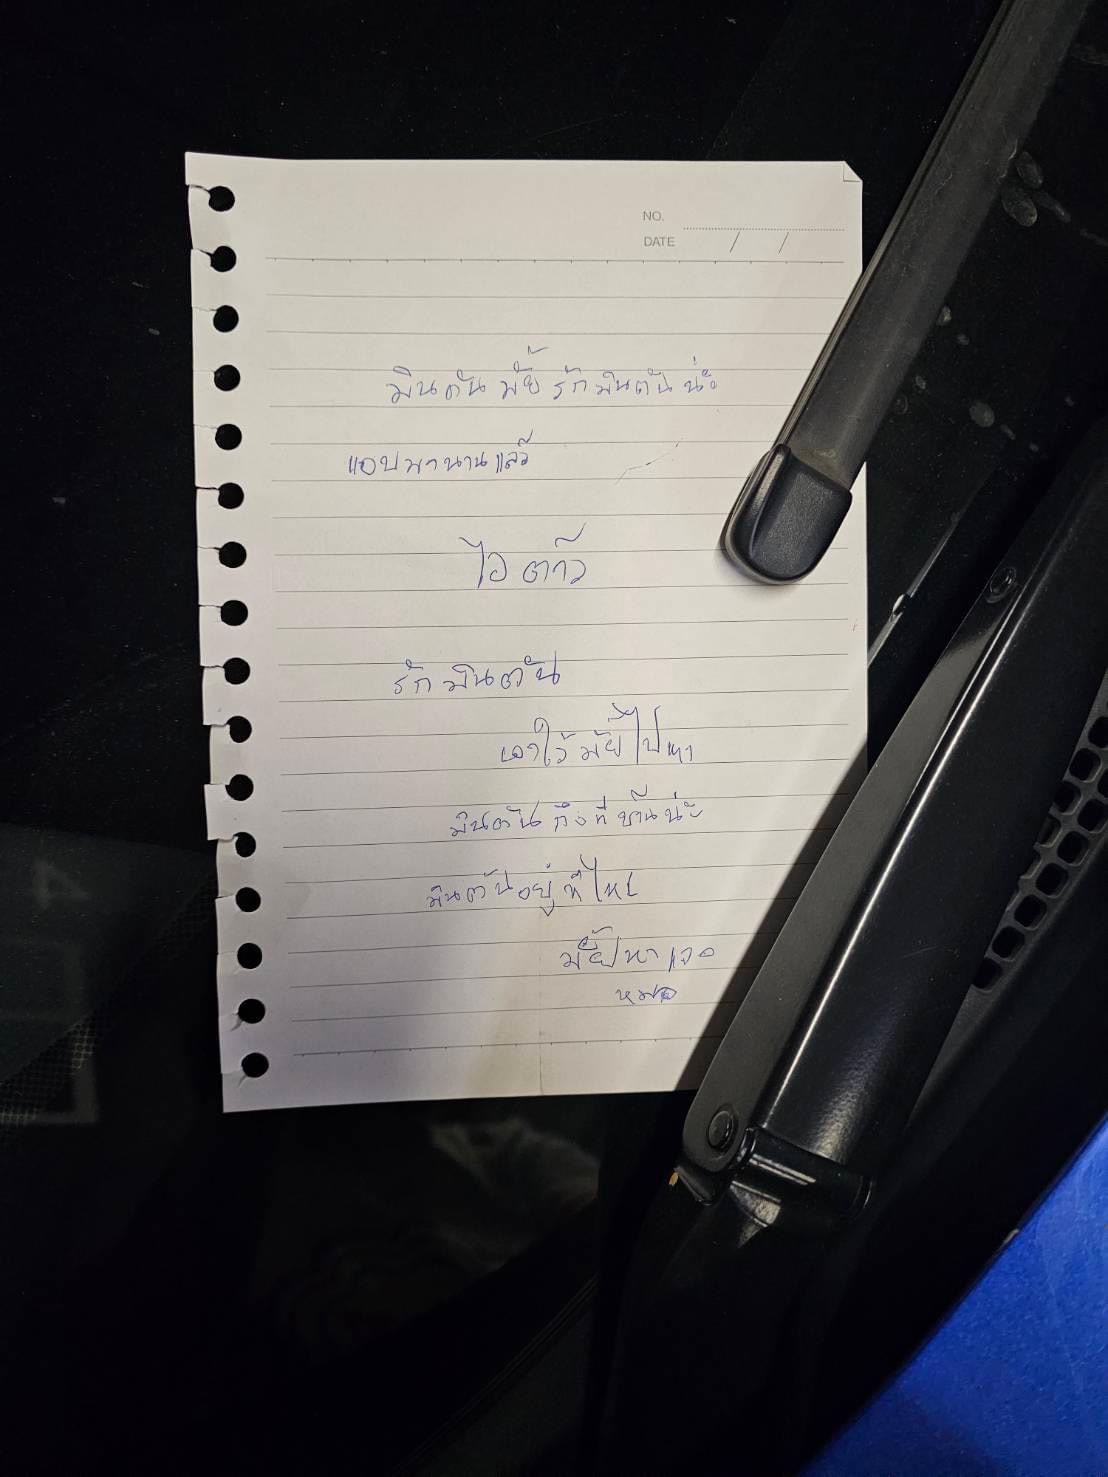 NO.
DATE / /
มินตัน มั้ย รักมินตัน น่ะ
แอบมานานแล้ว
ไอต้าว
รักมินตัน
เอาไว้ มัย ไปหา
มินตัน ถึงที่บ้านน่ะ
มินตันอยู่ที่ไหน
มั้ยหาเจอ
หมด